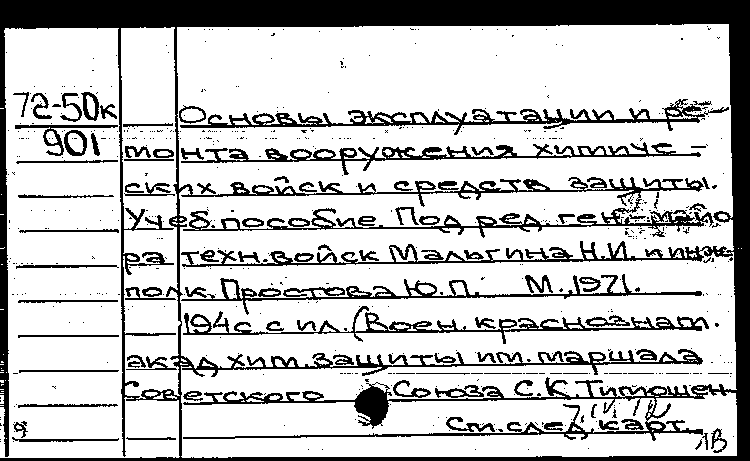 72-50к
901
Основы эксплуатации и ре-
монта вооружения химиче-
ских войск и средств защиты.
Учеб. пособие. Под ред. ген.-майо
ра техн. войск Мальгина Н.И. и инж.
полк. Простова Ю.П. М., 1971.
194 с. с ил. (Воен. краснознам.
акад. хим. защиты им. маршала
Советского Союза С.К. Тимошен-
См. след. карт.
ЛВ